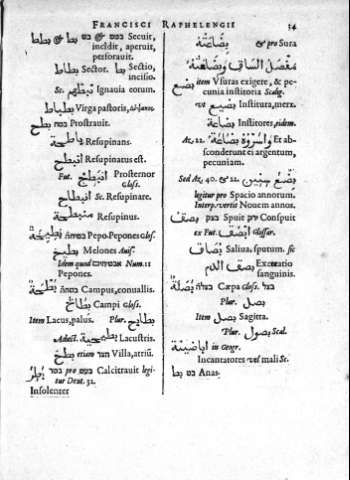 FRANCISCI RAPHELENGII 34
بط & בט & בטט بطط Secuit,
incidit, aperuit,
perforauit.
بطاط Sector. بط Sectio,
incisio.
Sc. Ignauia eorum.
بطباط Virga pastoris,
بطح בטח Prostrauit.
باطحة Resupinans.
انبطح Resupinatus est.
Fut. انبطح Prosternor
Gloss.
انبطاح Sc. Resupinare.
منبطحة Resupinus.
بطيخة Pepo.Pepones Glos.
بطيخ Melones Auis.
Idem quod אבטחים Num. 11
Pepones.
بطحة Campus, conuallis.
بطاح Campi Glos.
Item Lacus, palus. Plur. بطايح
Adiect. بطيحية Lacustris.
بطح etiam Villa, atriũ.
بطر בטר pro בעט Calcitrauit legi-
tur Deut. 32.
Insolenter
بضاعة & pro Sura
مفصل الساق وبضاعته
بضع item Vsuras exigere, & pe-
cunia institoria Scalig.
vt بضيع Institura, merx.
بضاعة Institores, eidem.
Act. 22. واسروة بضاعة Et abs-
conderunt ei argentum,
pecuniam.
Sed Act. 40. & 22. بضع سنين
legitur pro Spacio annorum.
Interp. vertit Nouem annos.
بصق בצק Spuit ירק Conspuit
ex Fut. ابصق Glossar.
بصاق Saliua, sputum. sic
بصف الدم Excreatio
sanguinis.
بصلة בצלה Cæpa Glos. בצל
Plur. بصل
Item بصل Sagitta.
Plur. بصول Scal.
اباضينة in Geogr.
Incantatores vel mali St.
بط בט Anas.